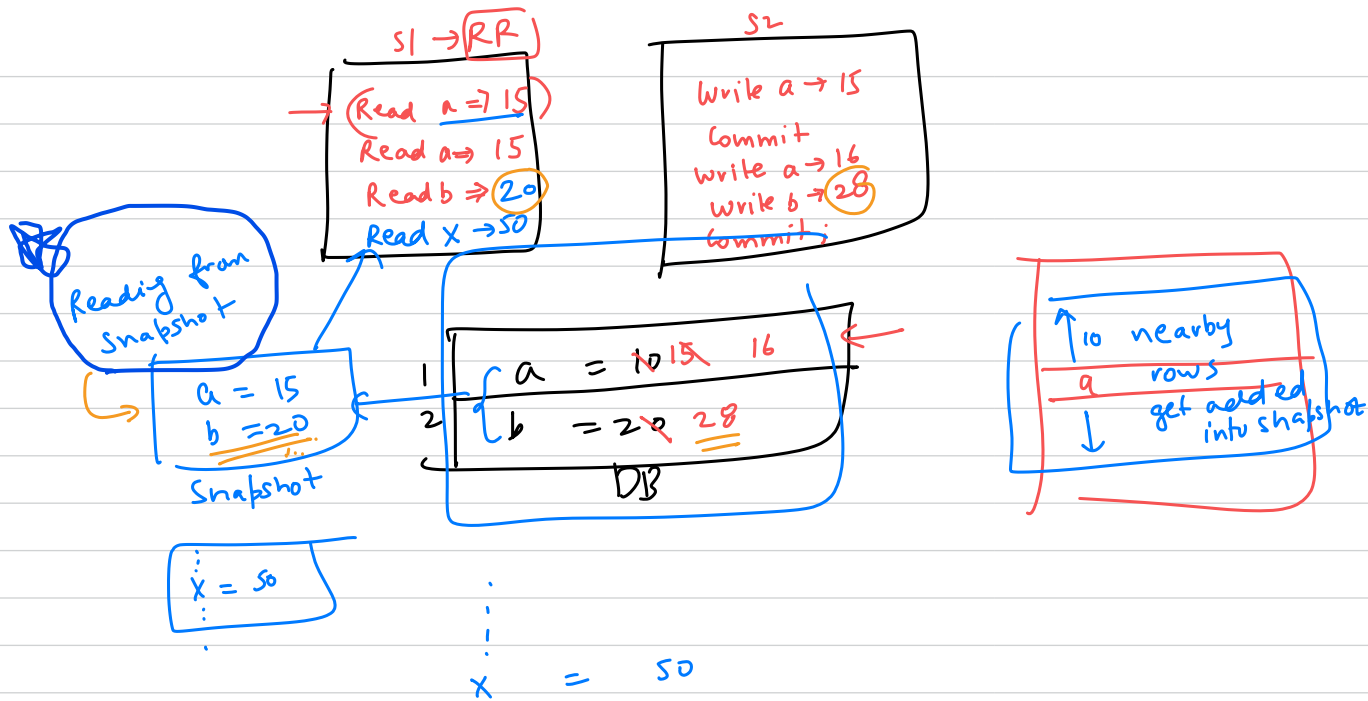 S1 → RR
Read a => 15
Read a => 15
Read b => 20
Read X → 50
S2
Write a → 15
Commit
Write a → 16
Write b → 28
Commit;
Readig from
snapshot
a = 15
b = 20
Snapshot
X = 50
1 a = 10 15 16
2 b = 20 28
DB
x = 50
10 nearby
a rows
get added
into snapshot